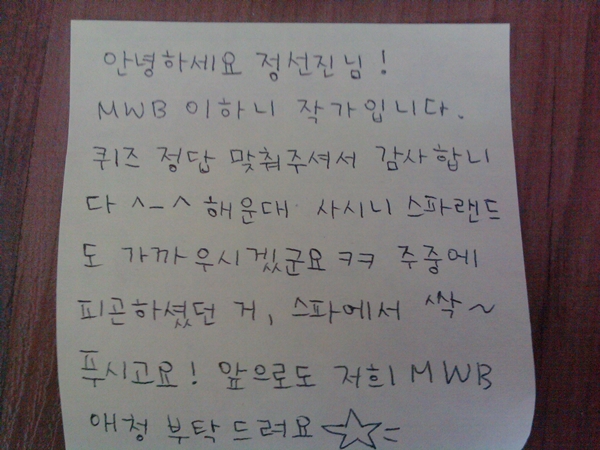 안녕하세요 정선진님!
MWB 이하니 작가입니다.
퀴즈 정답 맞춰주셔서 감사합니
다 ^-^ 해운대 사시니 스파랜드
도 가까우시겠군요 ㅋㅋ 주중에
피곤하셨던 거, 스파에서 싹~
푸시고요! 앞으로도 저희 MWB
애청 부탁드려요 ☆=